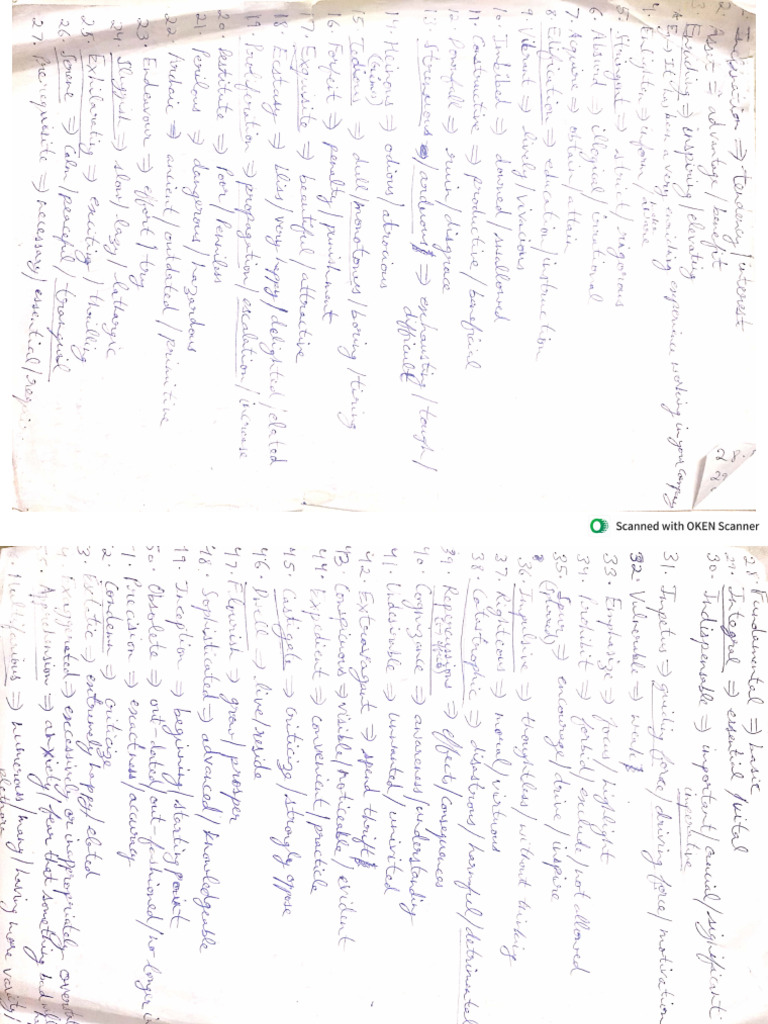 1. Inclination ⇒ tendency/interest
2. Asset ⇒ advantage/benefit
3. Enriching ⇒ inspiring/elevating
Eg It has been a very enriching experience working in your company
4. Enlighten ⇒ inform/
5. Stringent ⇒ strict/rigorous
6. Absurd ⇒ illogical/irrational
7. Acquire ⇒ obtain/attain
8. Edification ⇒ education/instruction
9. Vibrant ⇒ lively/vivacious
10. Imbibed ⇒ downed/swallowed
11. Constructive ⇒ productive/beneficial
12. Downfall ⇒ ruin/disgrace
13. Strenuous/arduous ⇒ exhausting/tough/
difficult
14. Heinous ⇒ odious/atrocious
(crimes)
15. Tedious ⇒ dull/monotonous/boring/tiring
16. Forfeit ⇒ penalty/punishment
17. Exquisite ⇒ beautiful/attractive
18. Ecstasy ⇒ bliss/very happy/delighted/elated
19. Proliferation ⇒ propagation/escalation/increase
20. Destitute ⇒ Poor/Penniless
21. Perilous ⇒ dangerous/hazardous
22. Archaic ⇒ ancient/outdated/primitive
23. Endeavour ⇒ effort/try
24. Sluggish ⇒ slow/lazy/lathargic
25. Exhilarating ⇒ exciting/thrilling
26. Serene ⇒ Calm/peaceful/tranquil
27. Prerequisite ⇒ necessary/essential/
Scanned with OKEN Scanner
28. Fundamental ⇒ basic
29. Integral ⇒ essential/vital
30. Indispensable ⇒ important/crucial/significant
imperative
31. Impetus ⇒ guiding force/driving force/motivation
32. Vulnerable ⇒ weak
33. Emphasize ⇒ focus/highlight
34. Prohibit ⇒ forbid/exclude/not allowed
35. Spur ⇒ encourage/drive/inspire
36. Impulsive ⇒ thoughtless/without thinking
37. Righteous ⇒ moral/virtuous
38. Catastrophic ⇒ disastrous/harmful/detrimental
39. Repercussions ⇒ effects/consequences
40. Cognizance ⇒ awareness/understanding
41. Undesirable ⇒ unwanted/uninvited
42. Extravagant ⇒ spend thrift
43. Conspicuous ⇒ visible/noticeable/evident
44. Expedient ⇒ convenient/practicle
45. Castigate ⇒ criticize/strongly oppose
46. Dwell ⇒ live/reside
47. Flourish ⇒ grow/prosper
48. Sophisticated ⇒ advanced/knowledgeable
49. Inception ⇒ beginning/starting point
50. Obsolete ⇒ out-dated/out-fashioned/no longer in
1. Precision ⇒ exactness/accuracy
2. Condemn ⇒ criticize
3. Ecstatic ⇒ extremely happy/elated
4. Exaggerated ⇒ excessively or inappropriately
Apprehension ⇒ anxiety/fear that something bad
⇒ numerous/many/having more variety/